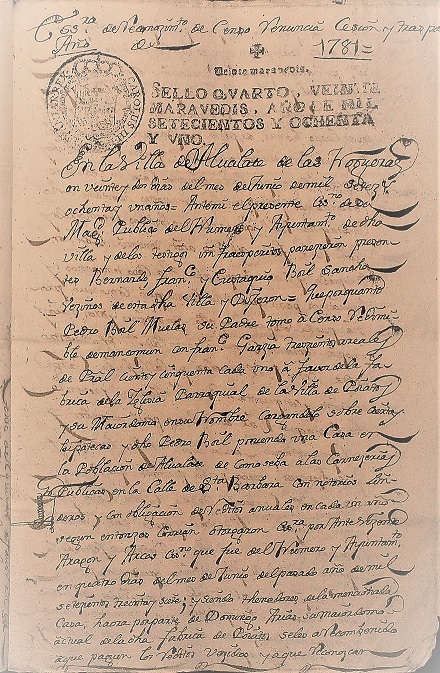 Ess.ra de Reconozim.to de Censo Renuncia Cesion y traspaso
Año de 1781=
Veinte maravedis.
SELLO QVARTO, VEINTE
MARAVEDIS, AÑO DE MIL
SETECIENTOS Y OCHENTA
Y VNO.
En la Villa de Albalate de las Nogueras
en veinte y dos dias del mes de Junio de mil setez.s
ochenta y un años= Antemi el presente Ess.no de su
Mag.d Publico del Numero y Ayuntam.to de dha
villa y de los testigos parezieron presen
tes Bernardo, Fran.co y Eustaquio Boil Sancho
vezinos de esta dha Villa y Dijeron= Que por quanto
Pedro Boil su Padre tomo a Censo Redimi
ble de mancomun con Fran.co Garzia trescientos reales
de Pral ciento y cinquenta cada uno a favor de la fa
brica de la Iglesia Parroquial de la Villa de
y su Maiordomo en su Nombre Cargandolo sobre ciertas
hipotecas y dho Pedro Boil poniendo una Casa en
la Poblacion de Albalate de como se ha a las Carnezerias
Publicas en la Calle de S.ta Barbara con notorios lin
deros y con obligacion de reditos anuales en cada un año
segun entonzes corrian otorgaron Ess.ra por Ante
Aragon y Arcas Ess.no que fue del Numero y Ayuntam.to
en quatro dias del mes de Junio del pasado año de mil
setezientos treinta y siete; y siendo thenedores de la mencionada
Casa, haora por parte de Domingo Arias su maiordomo
actual de la dha fabrica de seles a reconvenido
a que paguen los reditos venzidos y a que reconozcan